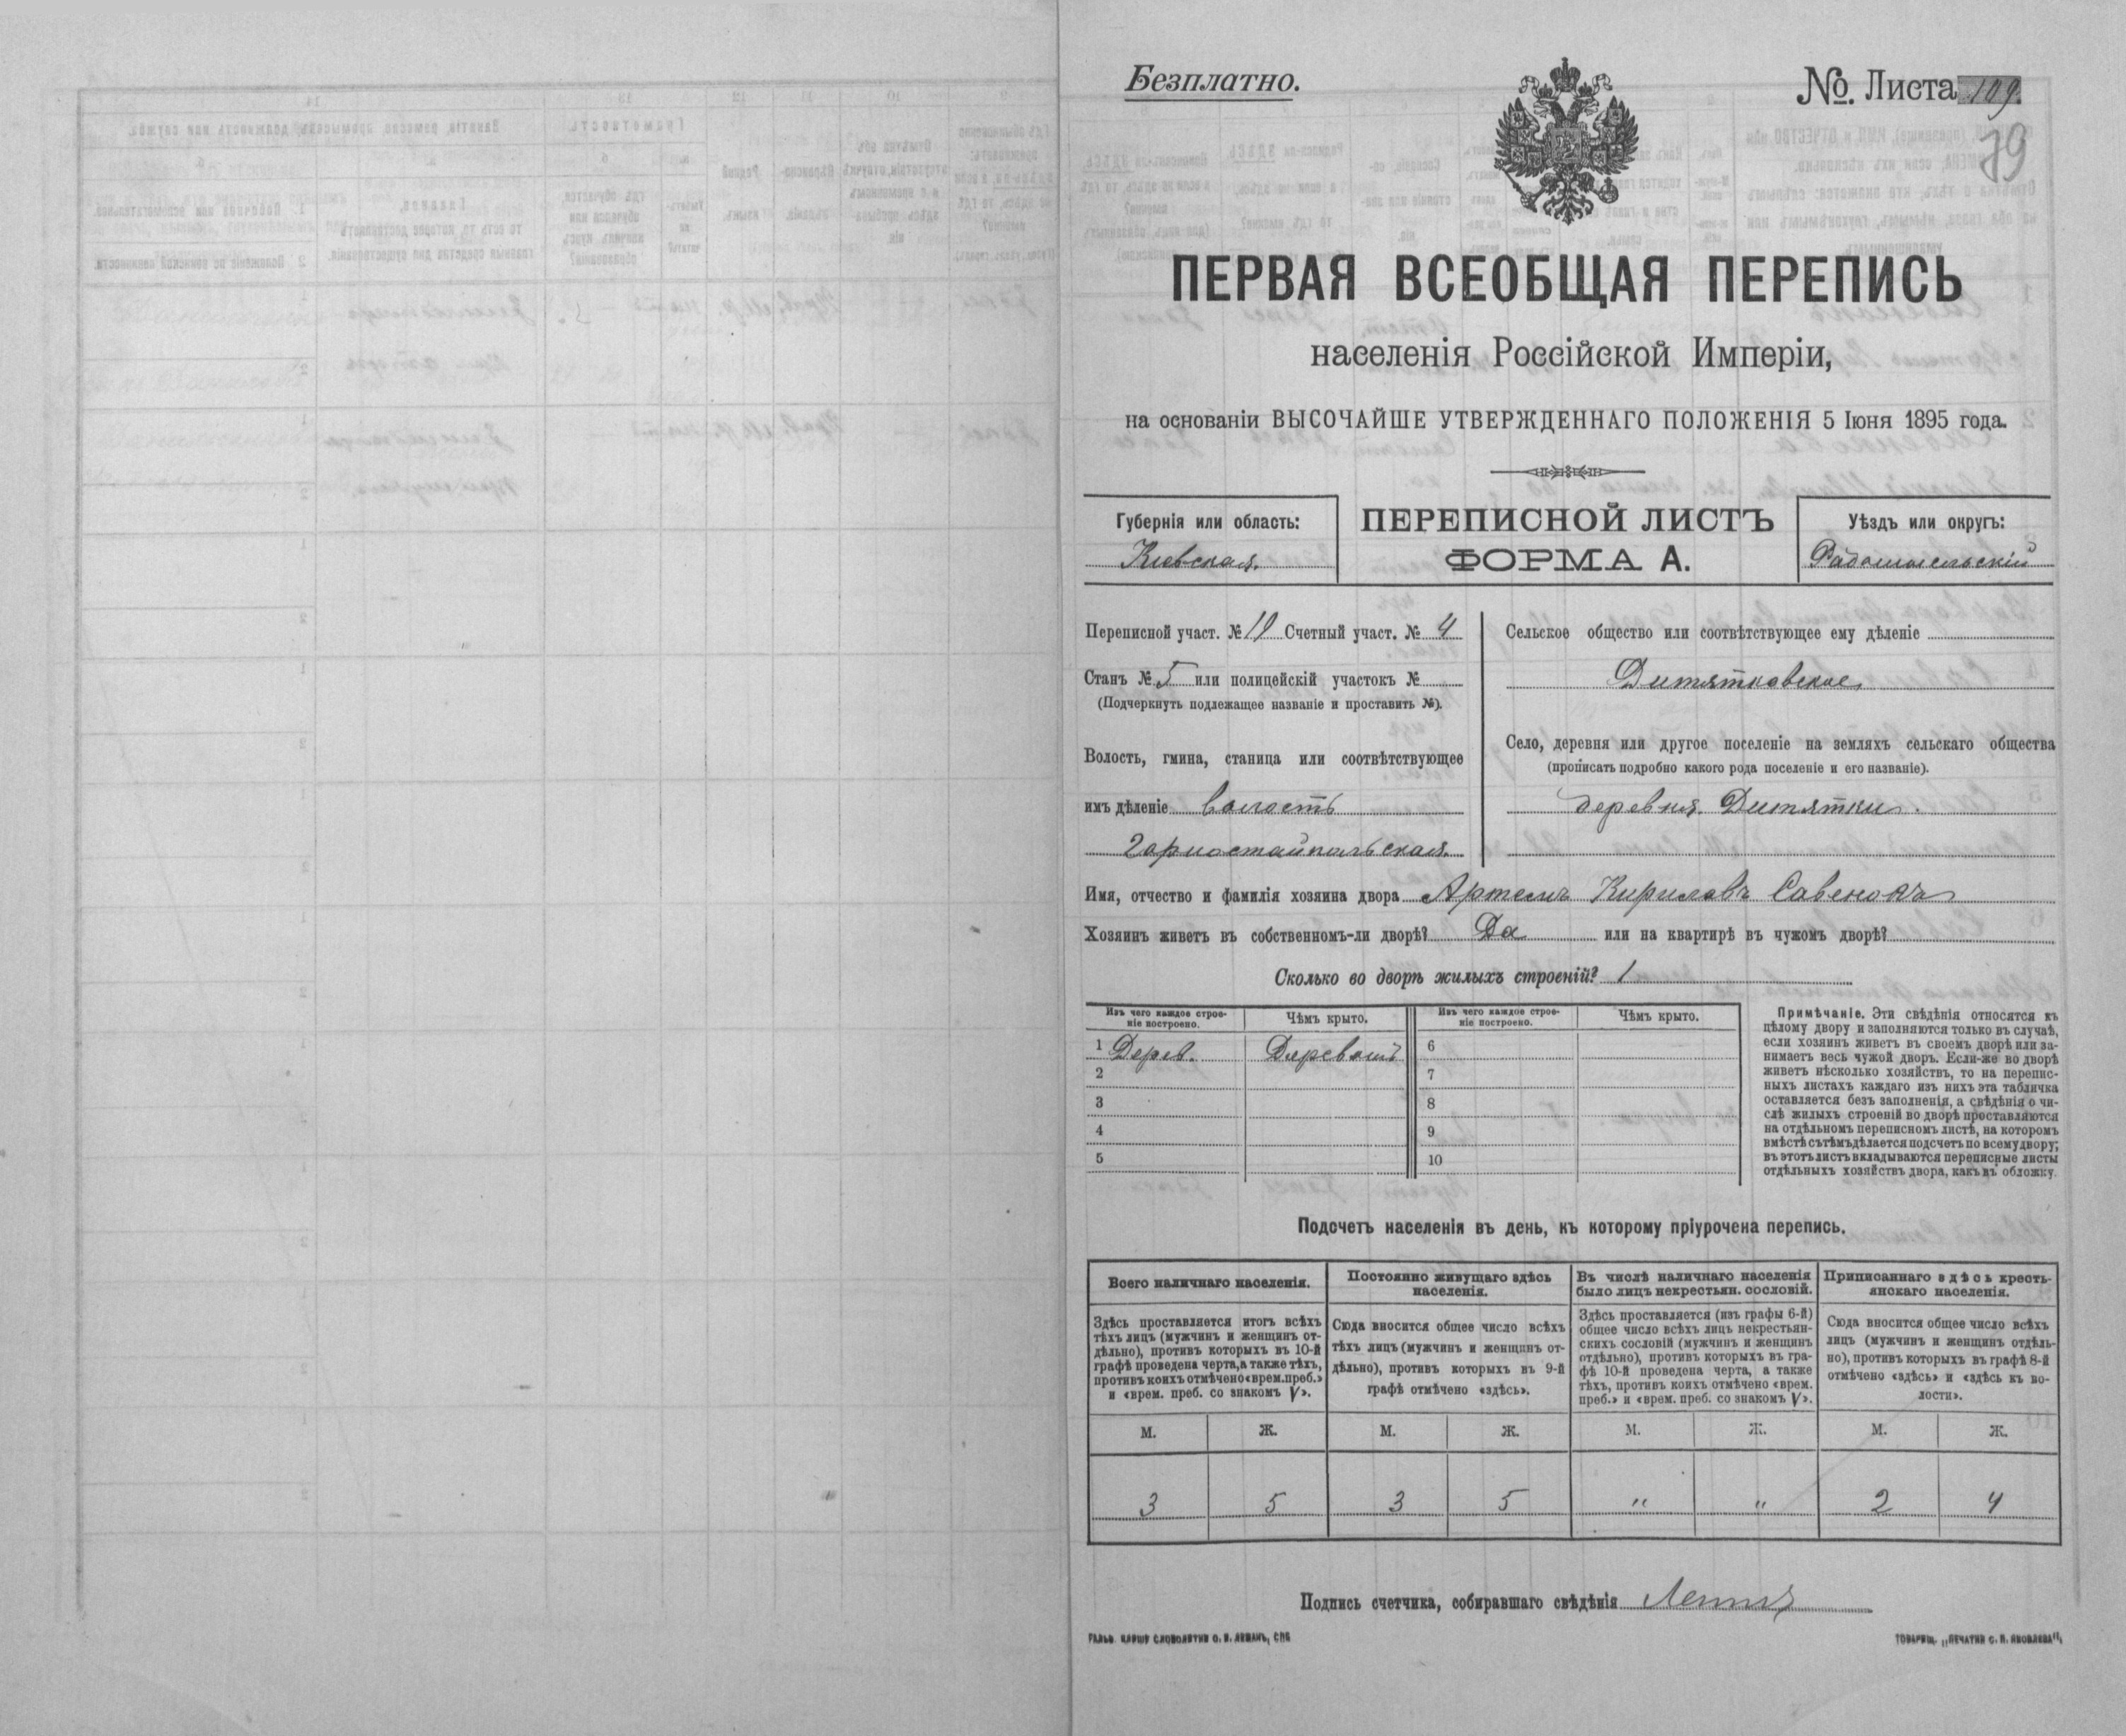 Безплатно.
№. Листа 109.
79
ПЕРВАЯ ВСЕОБЩАЯ ПЕРЕПИСЬ
населенія Россійской Имперіи,
на основаніи ВЫСОЧАЙШЕ УТВЕРЖДЕННАГО ПОЛОЖЕНІЯ 5 Іюня 1895 года.
Губернія или область:
Кіевская.
ПЕРЕПИСНОЙ ЛИСТЪ
ФОРМА А.
Уѣздъ или округъ:
Радомысльскій
Переписной участ. № 19 Счетный участ. № 4
Станъ № 5 или полицейскій участокъ №
(Подчеркнуть подлежащее названіе и проставить №).
Волость, гмина, станица или соотвѣтствующее
имъ дѣленіе волость
Горностайпольская.
Сельское общество или соотвѣтствующее ему дѣленіе
Дитятковское
Село, деревня или другое поселеніе на земляхъ сельскаго общества
(прописать подробно какого рода поселеніе и его названіе).
деревня Дитятки.
Имя, отчество и фамилія хозяина двора Артемъ Кириловъ Савенокъ
Хозяинъ живетъ въ собственномъ-ли дворѣ? Да или на квартирѣ въ чужомъ дворѣ?
Сколько во дворѣ жилыхъ строеній? 1
Изъ чего каждое строе-
ніе построено.
Чѣмъ крыто.
Изъ чего каждое строе-
ніе построено.
Чѣмъ крыто.
1 Дерев. Деревомъ 6
2 7
3 8
4 9
5 10
Примѣчаніе. Эти свѣдѣнія относятся къ
цѣлому двору и заполняются только въ случаѣ,
если хозяинъ живетъ въ своемъ дворѣ или за-
нимаетъ весь чужой дворъ. Если-же во дворѣ
живетъ нѣсколько хозяйствъ, то на перепис-
ныхъ листахъ каждаго изъ нихъ эта табличка
оставляется безъ заполненія, а свѣдѣнія о чи-
слѣ жилыхъ строеній во дворѣ проставляются
на отдѣльномъ переписномъ листѣ, на которомъ
вмѣстѣ съ тѣмъ дѣлается подсчетъ по всему двору;
въ этотъ листъ вкладываются переписные листы
отдѣльныхъ хозяйствъ двора, какъ въ обложку.
Подсчетъ населенія въ день, къ которому пріурочена перепись.
Всего наличнаго населенія.
Постоянно живущаго здѣсь
населенія.
Въ числѣ наличнаго населенія
было лицъ некрестьян. сословій.
Приписаннаго здѣсь кресть-
янскаго населенія.
Здѣсь проставляется итогъ всѣхъ
тѣхъ лицъ (мужчинъ и женщинъ от-
дѣльно), противъ которыхъ въ 10-й
графѣ проведена черта, а также тѣхъ,
противъ коихъ отмѣчено «врем. преб.»
и «врем. преб. со знакомъ V».
Сюда вносится общее число всѣхъ
тѣхъ лицъ (мужчинъ и женщинъ от-
дѣльно), противъ которыхъ въ 9-й
графѣ отмѣчено «здѣсь».
Здѣсь проставляется (изъ графы 6-й)
общее число всѣхъ лицъ некрестьян-
скихъ сословій (мужчинъ и женщинъ
отдѣльно), противъ которыхъ въ гра-
фѣ 10-й проведена черта, а также
тѣхъ, противъ коихъ отмѣчено «врем.
преб.» и «врем. преб. со знакомъ V».
Сюда вносится общее число всѣхъ
лицъ (мужчинъ и женщинъ отдѣль-
но), противъ которыхъ въ графѣ 8-й
отмѣчено «здѣсь» и «здѣсь къ во-
лости».
М. Ж. М. Ж. М. Ж. М. Ж.
3 5 3 5 " " 2 4
Подпись счетчика, собиравшаго свѣдѣнія
ГАЛЬВ. КЛИШЕ СЛОВОЛИТНИ О. И. ЛЕМАНЪ, СПБ
ТОВАРИЩ. „ПЕЧАТНЯ С. П. ЯКОВЛЕВА",